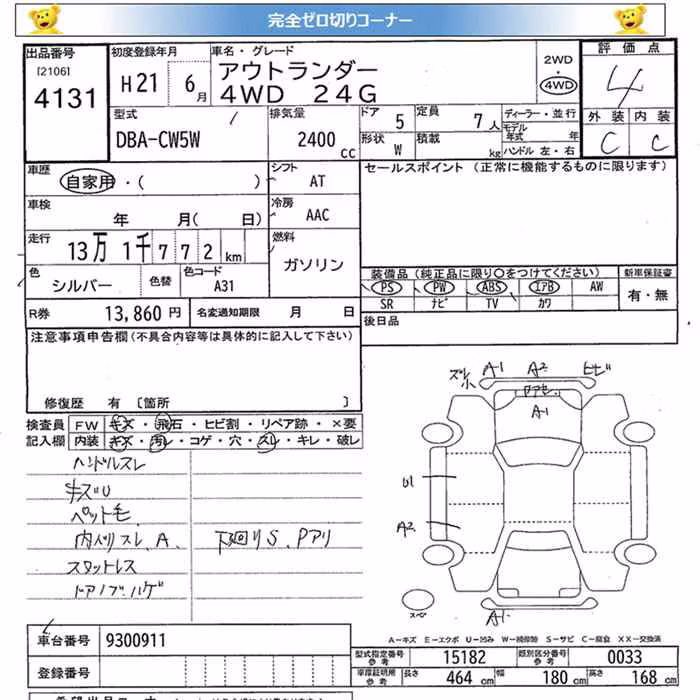 完全ゼロ切りコーナー
出品番号 初度登録年月 車名・グレード 2WD 評価点
[2106] H21 6月 アウトランダー 4WD 4
4131 4WD 24G
型式 排気量 ドア 5 定員 7人 ディーラー・並行 外装 内装
DBA-CW5W 2400cc 形状 W 積載 kg モデル年式 年 C C
ハンドル 左・右
車歴 自家用・( ) シフト AT セールスポイント (正常に機能するものに限ります)
車検 年 月( 日) 冷房 AAC
走行 13万1千772km 燃料 ガソリン
色 シルバー 色替 色コード A31 装備品(純正品に限り○をつけてください) 新車保証書
PS PW ABS エアB AW 有・無
SR ナビ TV カワ
R券 13,860円 名変通知期限 月 日 後日品
注意事項申告欄(不具合内容等は具体的に記入して下さい)
修復歴 有 [箇所 ]
検査員記入欄 FW キズ・飛石・ヒビ割・リペア跡・×要
内装 キズ・汚レ・コゲ・穴・スレ・キレ・破レ
ハンドルスレ
キズU
ペット毛
内ハリスレ、A、 下廻りS、Pアリ
スタットレス
ドアノブハゲ
A-1 A2 ヒビ
A-1
U1
A2
スペア
A-1
A-キズ E-エクボ U-凹み W-補修跡 S-サビ C-腐食 XX-交換済
車台番号 9300911
型式指定番号 参考 15182 類別区分番号 参考 0033
登録番号
車庫証明用 参考 長さ 464 cm 幅 180 cm 高さ 168 cm
希望出品コーナー